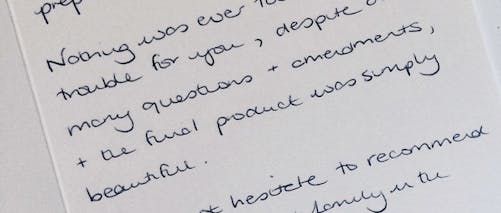 prep
Nothing was ever
trouble for you, despite
many questions + amendments,
+ the final product was simply
beautiful.
hesitate to recommend
family in the